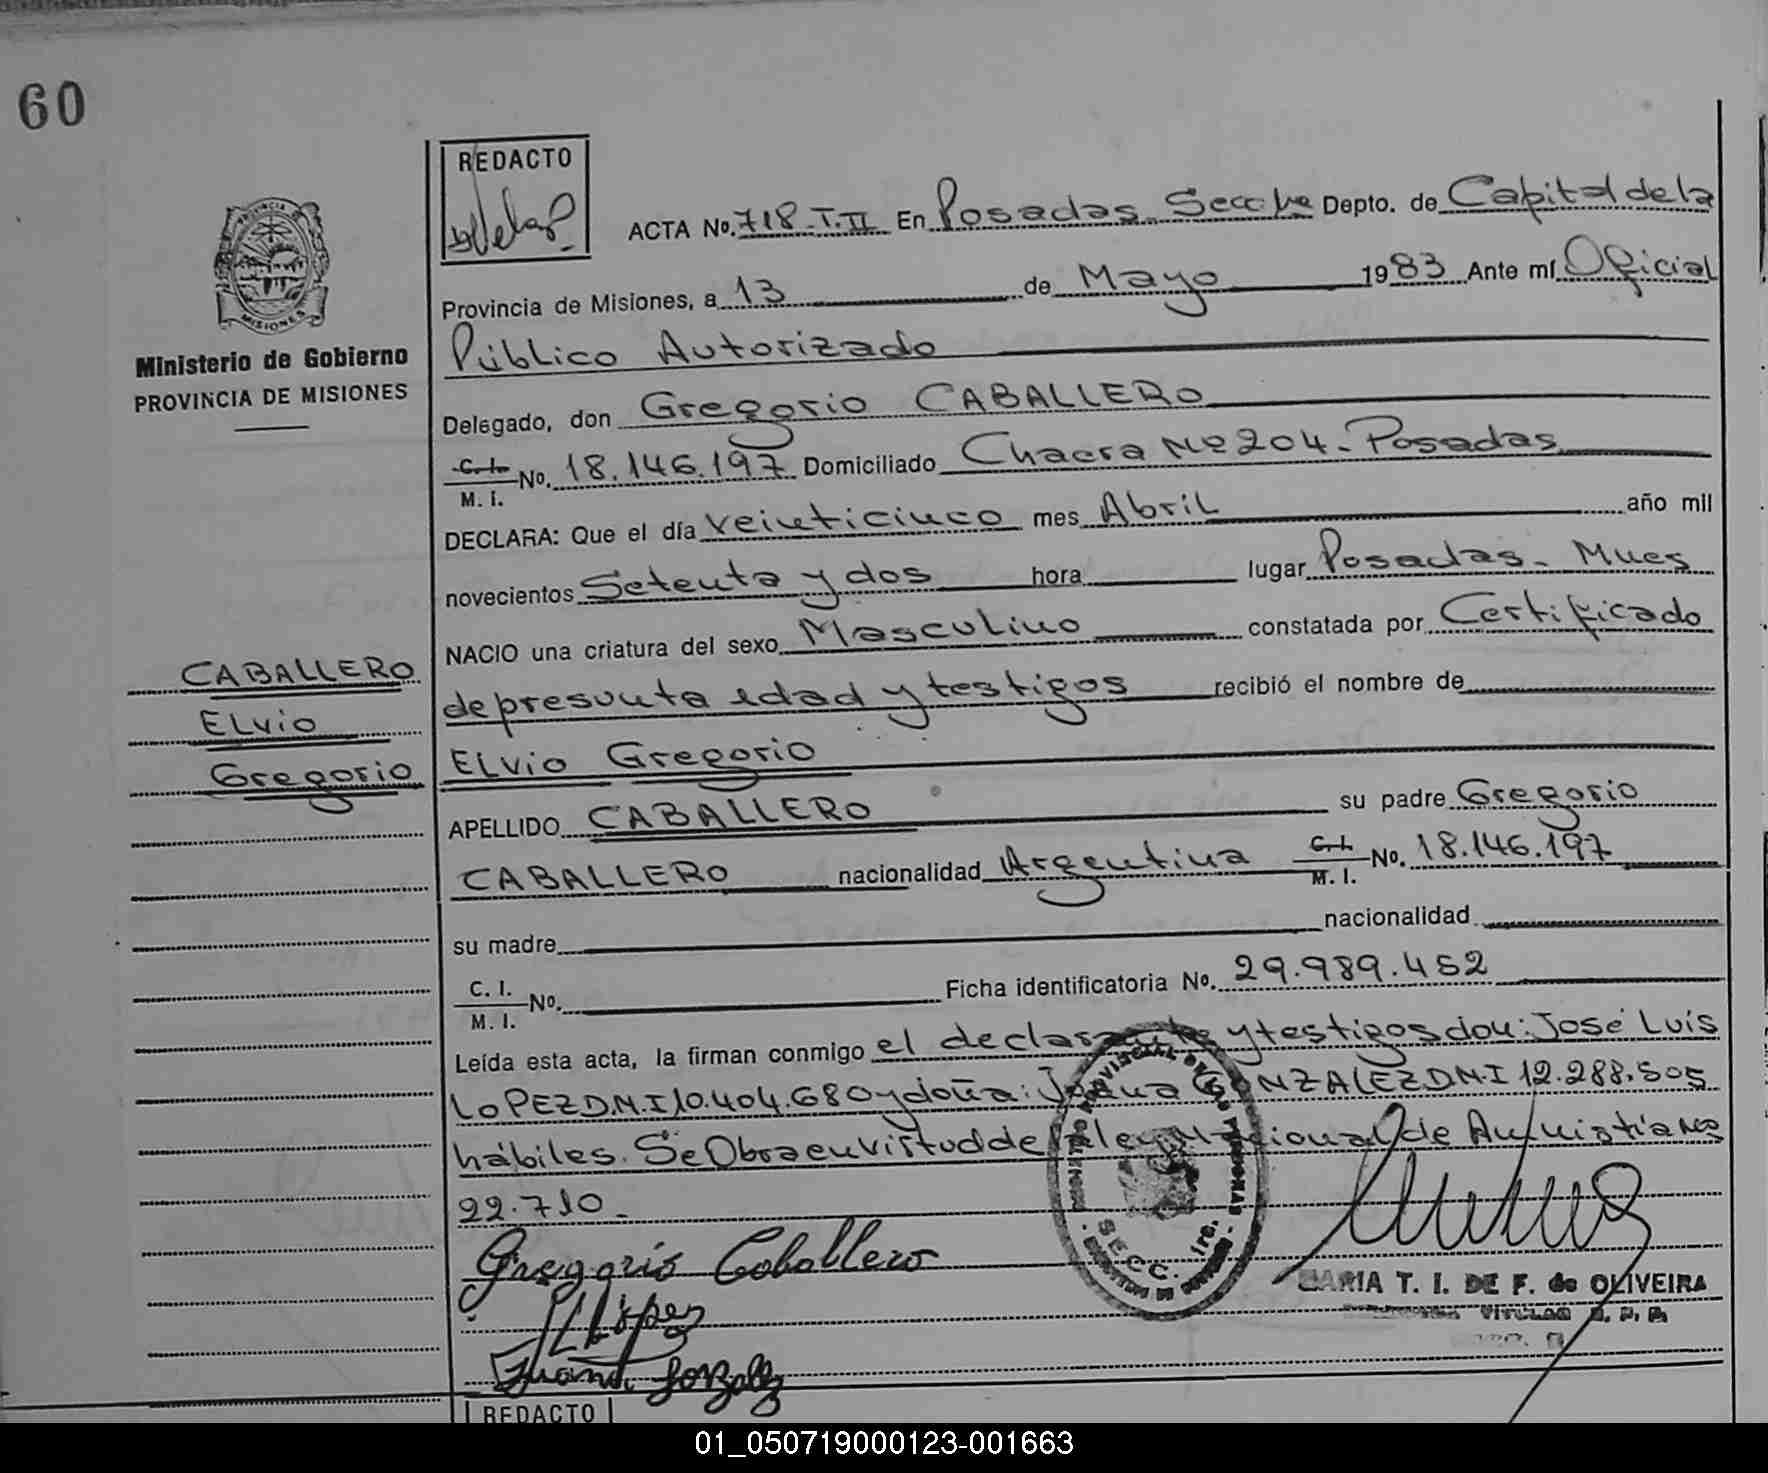 60
REDACTO
ACTA No. 718-T.II En Posadas Secc 1ra Depto. de Capital de la
Provincia de Misiones, a 13 de Mayo 1983 Ante mí Oficial
Público Autorizado
MISIONES
Ministerio de Gobierno
PROVINCIA DE MISIONES
Delegado, don Gregorio CABALLERO
C. I.
M. I. No. 18.146.197 Domiciliado Chacra Nº 204 - Posadas
DECLARA: Que el día veinticinco mes Abril año mil
novecientos Setenta y dos hora lugar Posadas - Mnes
NACIO una criatura del sexo Masculino constatada por Certificado
de presunta edad y testigos recibió el nombre de
CABALLERO
ELvio
Gregorio
ELvio Gregorio
APELLIDO CABALLERO su padre Gregorio
CABALLERO nacionalidad Argentina C. I. M. I. No. 18.146.197
su madre nacionalidad
C. I.
M. I. No. Ficha identificatoria No. 29.989.452
Leída esta acta, la firman conmigo el declarante y testigos don: José Luís
LOPEZ D.N.I 10.404.680 y doña: Juana GONZALEZ D.N.I 12.288.505
hábiles. Se Obra en virtud de Ley Nacional de Amnistía Nº
22.710.-
Gregorio Caballero
López
Juana Gonzalez
SECC. 1ra.
MARIA T. I. DE F. de OLIVEIRA
TITULAR R. P. P.
REDACTO
01_050719000123-001663